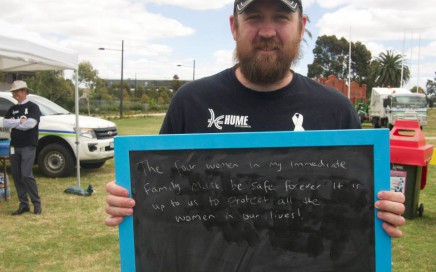 HUME
The four women in my immediate
family must be safe forever. It is
up to us to protect all the
women in our lives!